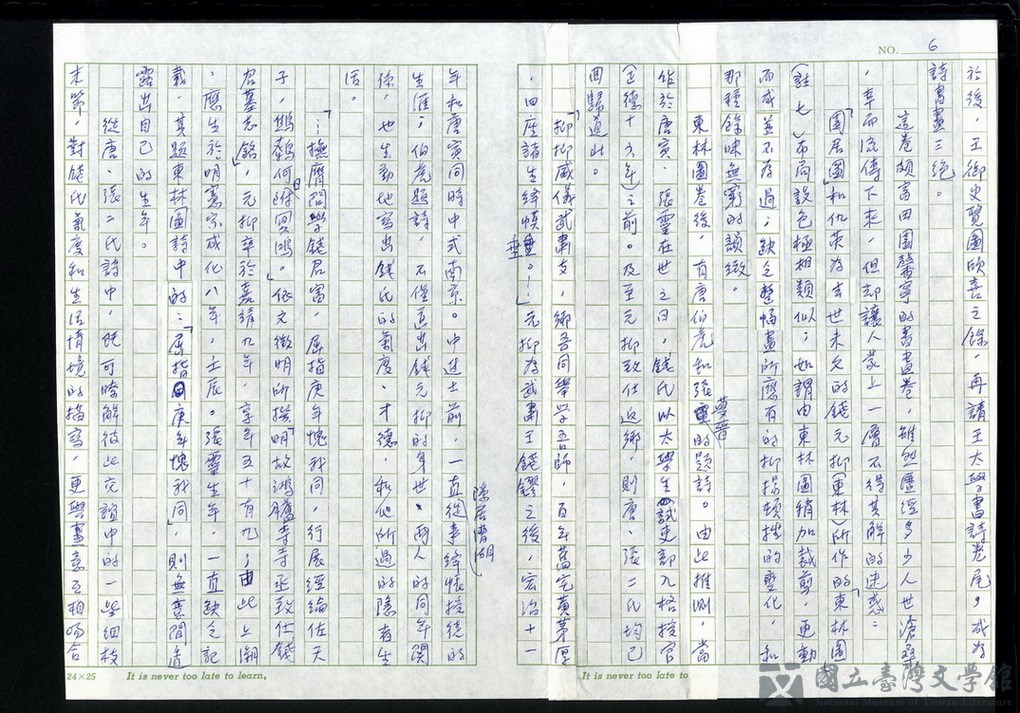 NO. 6
於後，王御史覽圖欣喜之餘，再請王太學書詩卷尾，成為
詩書畫三絕。
這卷頗富田園馨寧的書畫卷，雖然歷經多少人世滄桑
，幸而流傳下來，但却讓人蒙上一層不得其解的迷惑：
「園居圖」和仇英為去世未久的錢元抑（東林）所作的「東林圖
（註七）布局設色極相類似；如謂由東林圖稍加裁剪，更動
而成並不為過；缺乏整幅畫所應有的抑揚頓挫的變化，和
那種餘味無窮的韻緻。
東林圖卷後，有唐伯虎和張靈（夢晉）的題詩。由此推測，當
作於唐寅、張靈在世之日，錢氏以太學生試吏部入格授官
（正德十六年）之前。及至元抑致仕返鄉，則唐、張二氏均已
回歸道山。
「抑抑威儀武肅支，鄉吾同舉學吾師，百年舊宅黃茅厚
，四座諸生絳幔垂。…」元抑為武肅王錢鏐之後，宏治十一
年和唐寅同時中式南京。中進士前，一直從事絳帳授徒的
生涯；伯虎題詩，不僅道出錢元抑的身世、兩人的同年關
係，也生動地寫出錢氏的氣度、才德，和他所過的隱者生
活。
「…撫膺問學錢君富，屈指庚年愧我同，行展經綸佐天
子，鷦鷯何附冥鴻。」依文徵明所撰「明故鴻臚寺寺丞致仕錢
君墓志銘」，元抑卒於嘉靖九年，享年五十有九；由此上溯
，應生於明憲宗成化八年，壬辰。張靈生年，一直缺乏記
載，其題東林圖詩中的：「屈指庚年愧我同」，則無意間透
露出自己的生年。
從唐、張二氏詩中，既可瞭解彼此交誼中的一些細枝
末節，對錢氏氣度和生活情境的描寫，更與畫意互相吻合
24×25
It is never too late to learn.
It is never too late to
國立臺灣文學館
National Museum of Taiwan Literature